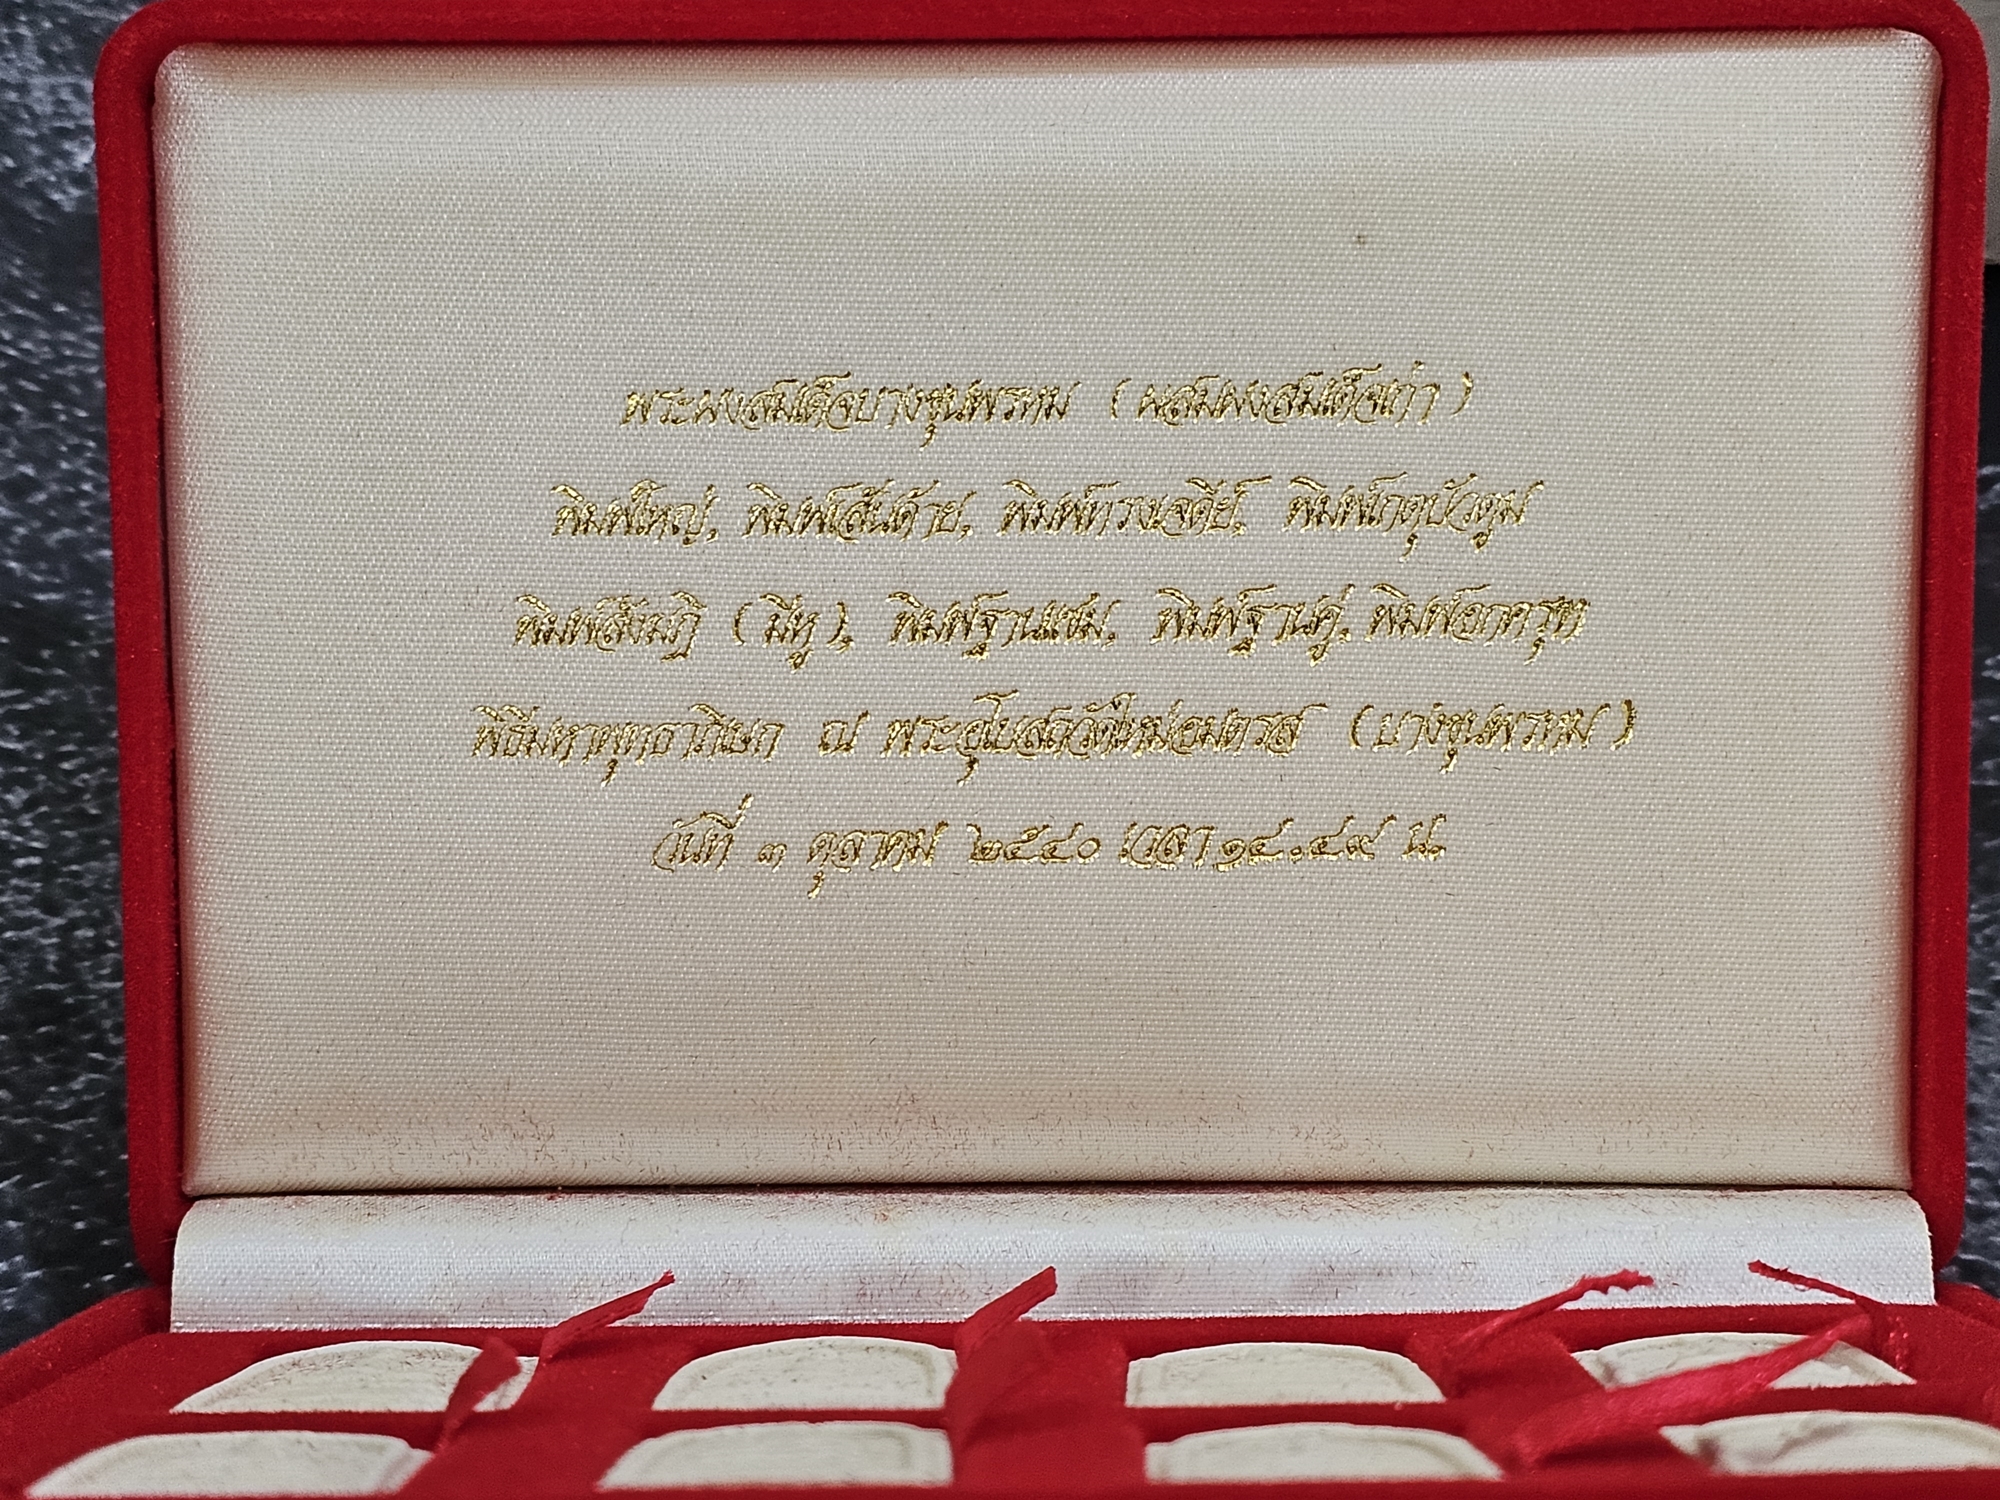 พระผงสมเด็จบางขุนพรหม (ผสมผงสมเด็จเก่า)
พิมพ์ใหญ่, พิมพ์เส้นด้าย, พิมพ์ทรงเจดีย์, พิมพ์เกตุบัวตูม
พิมพ์สังฆาฏิ (มีหู), พิมพ์ฐานแซม, พิมพ์ฐานคู่, พิมพ์อกครุฑ
พิธีมหาพุทธาภิเษก ณ พระอุโบสถวัดใหม่อมตรส (บางขุนพรหม)
วันที่ ๓ ตุลาคม ๒๕๔๐ เวลา ๑๔.๔๙ น.